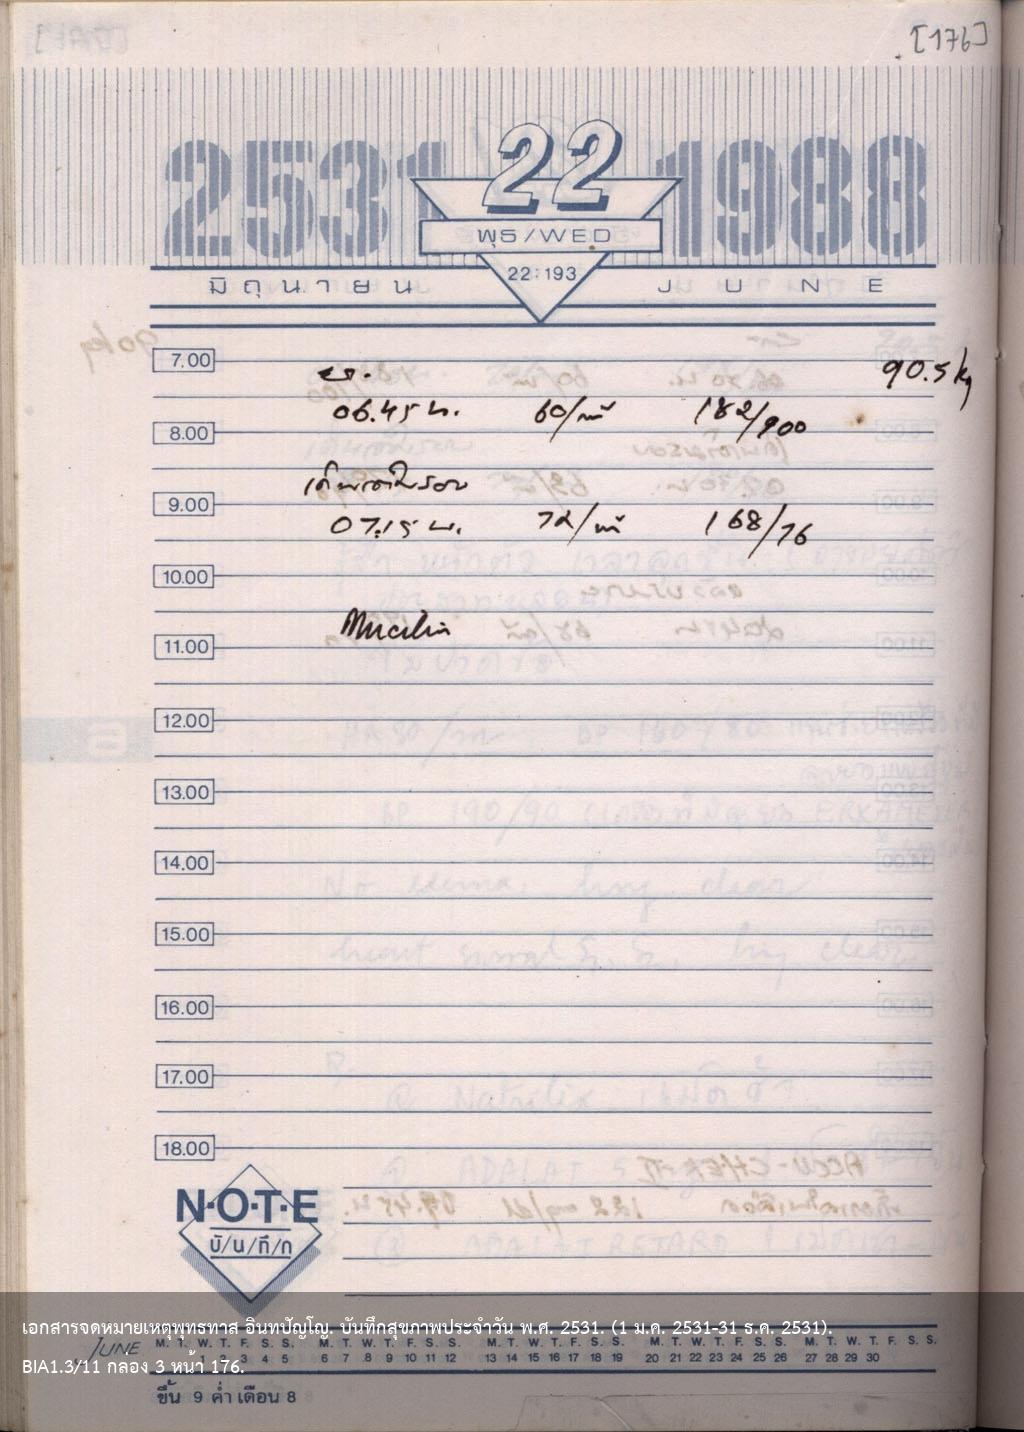 [176]
2531 22 1988
พุธ/WED
22:193
มิถุนายน JUNE
7.00
90.5 kg
06.45 น. 60/นาที 182/900
8.00
9.00
07.15 น. 72/นาที 168/76
10.00
Mucilin
11.00
12.00
13.00
14.00
15.00
16.00
17.00
18.00
N·O·T·E
บั/น/ทึ/ก
เอกสารจดหมายเหตุพุทธทาส อินทปัญโญ. บันทึกสุขภาพประจำวัน พ.ศ. 2531. (1 ม.ค. 2531-31 ธ.ค. 2531).
JUNE M. T. W. T. F. S. S. M. T. W. T. F. S. S. M. T. W. T. F. S. S. M. T. W. T. F. S. S. M. T. W. T. F. S. S.
1 2 3 4 5 6 7 8 9 10 11 12 13 14 15 16 17 18 19 20 21 22 23 24 25 26 27 28 29 30
BIA1.3/11 กล่อง 3 หน้า 176.
ขึ้น 9 ค่ำ เดือน 8